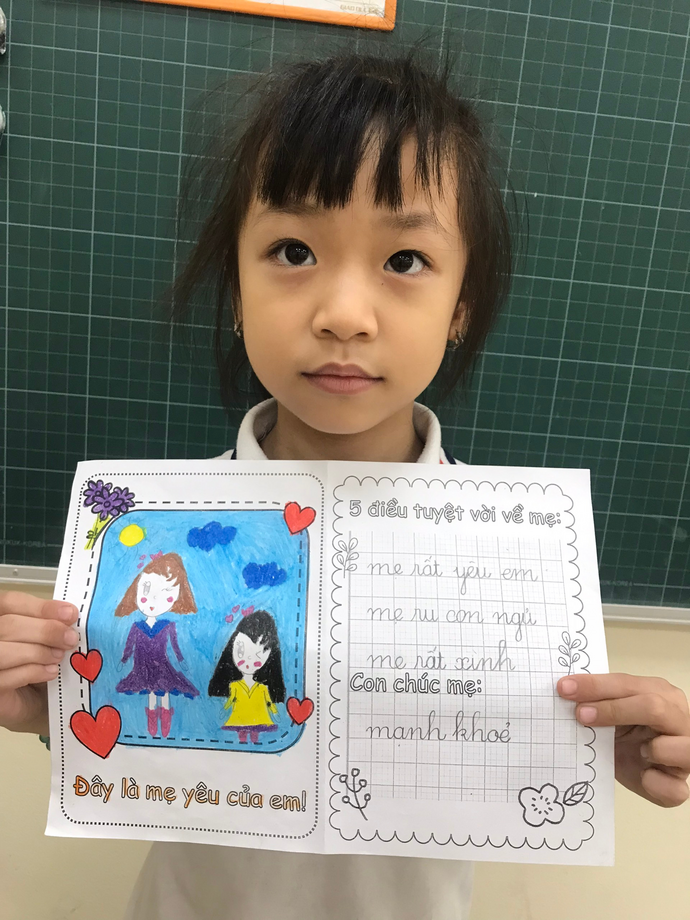 Đây là mẹ yêu của em!
5 điều tuyệt vời về mẹ:
mẹ rất yêu em
mẹ ru con ngủ
mẹ rất xinh
Con chúc mẹ:
mạnh khoẻ